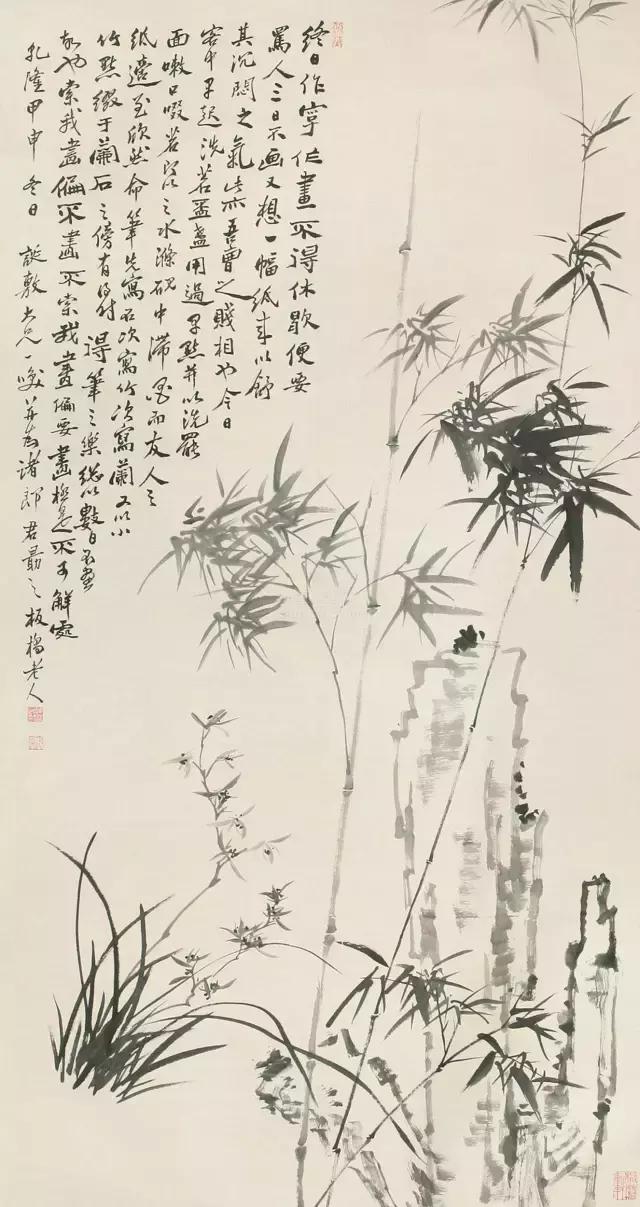 終日作字作畫不得休歇便要
罵人三日不画又想一幅紙來以舒
其沉悶之氣此亦吾曹之賤相也今日
客中早起洗茗盃盞用過早點并以洗罷
面嗽口啜茗之水滌硯中滞墨而友人之
紙適至欣然命筆先寫石次寫竹次寫蘭又以小
竹點綴于蘭石之傍有得時得筆之樂總以數日不畫
故也索我畫偏不畫不索我畫偏要畫極是不可解處
乾隆甲申冬日 誕敷大兄一噱并為諸郎君勗之板橋老人